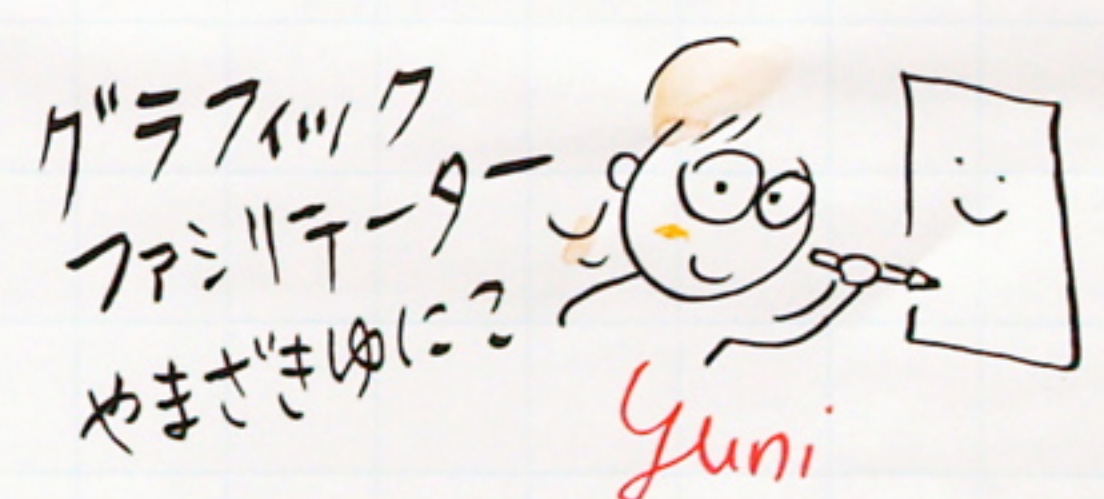 グラフィック
ファシリテーター
やまざきゆにこ
yuni